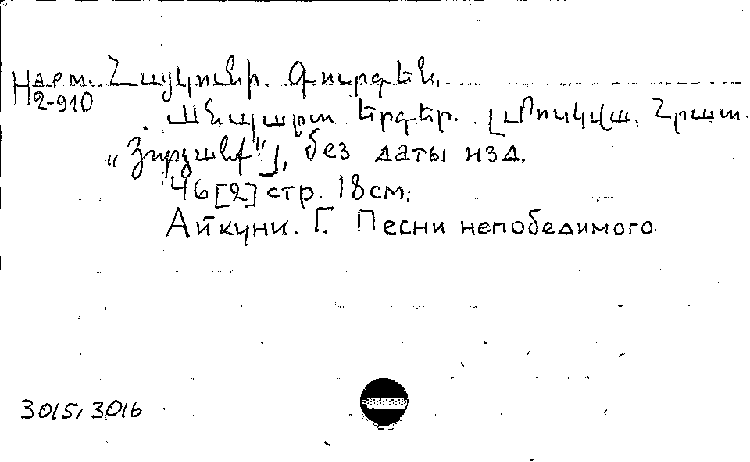 Нарм. Հայկունի. Գուրգեն,
2-910
Անպարտ երգեր. [Մոսկվա, Հրատ.
„ ", без даты изд.
46 [2] стр. 18см.
Айкуни. Г. Песни непобедимого
3015, 3016